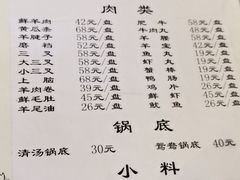 肉类
鲜羊肉 42元/盘 肥牛 58元/盘
黄瓜条 68元/盘 牛肉丸
羊腱子 58元/盘 羊腰
磨裆 52元/盘 羊宝
三叉 58元/盘 鱼丸
大三叉 58元/盘 虾丸
小三叉 58元/盘 蟹棒
上脑 68元/盘 鸭肠
羊肉卷 39元/盘 鸡片 26元/盘
鲜毛肚 45元/盘 鲜虾
羊尾油 26元/盘 鱿鱼 26元/盘
锅底
清汤锅底 30元 鸳鸯锅底 40元
小料